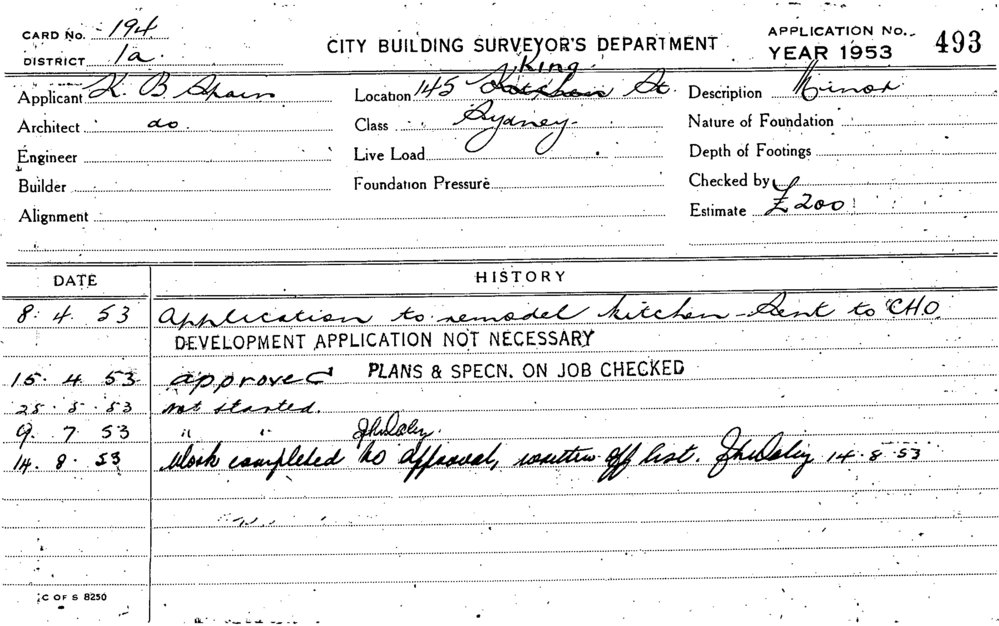 CARD No. 194
DISTRICT 1a.
CITY BUILDING SURVEYOR'S DEPARTMENT
APPLICATION No.. 493
YEAR 1953
Applicant K. B Spain
King
Location 145 St.
Description Minor
Architect do.
Class Sydney.
Nature of Foundation
Engineer
Live Load
Depth of Footings
Builder
Foundation Pressure
Checked by
Alignment
Estimate £200
DATE HISTORY
8. 4. 53 Application to remodel kitchen - Sent to C.H.O.
DEVELOPMENT APPLICATION NOT NECESSARY
15. 4. 53 approved PLANS & SPECN. ON JOB CHECKED
25. 5. 53 Not started.
9. 7. 53 " "
14. 8. 53 Work completed to approval, written off list. 14. 8. 53
C OF S 8250